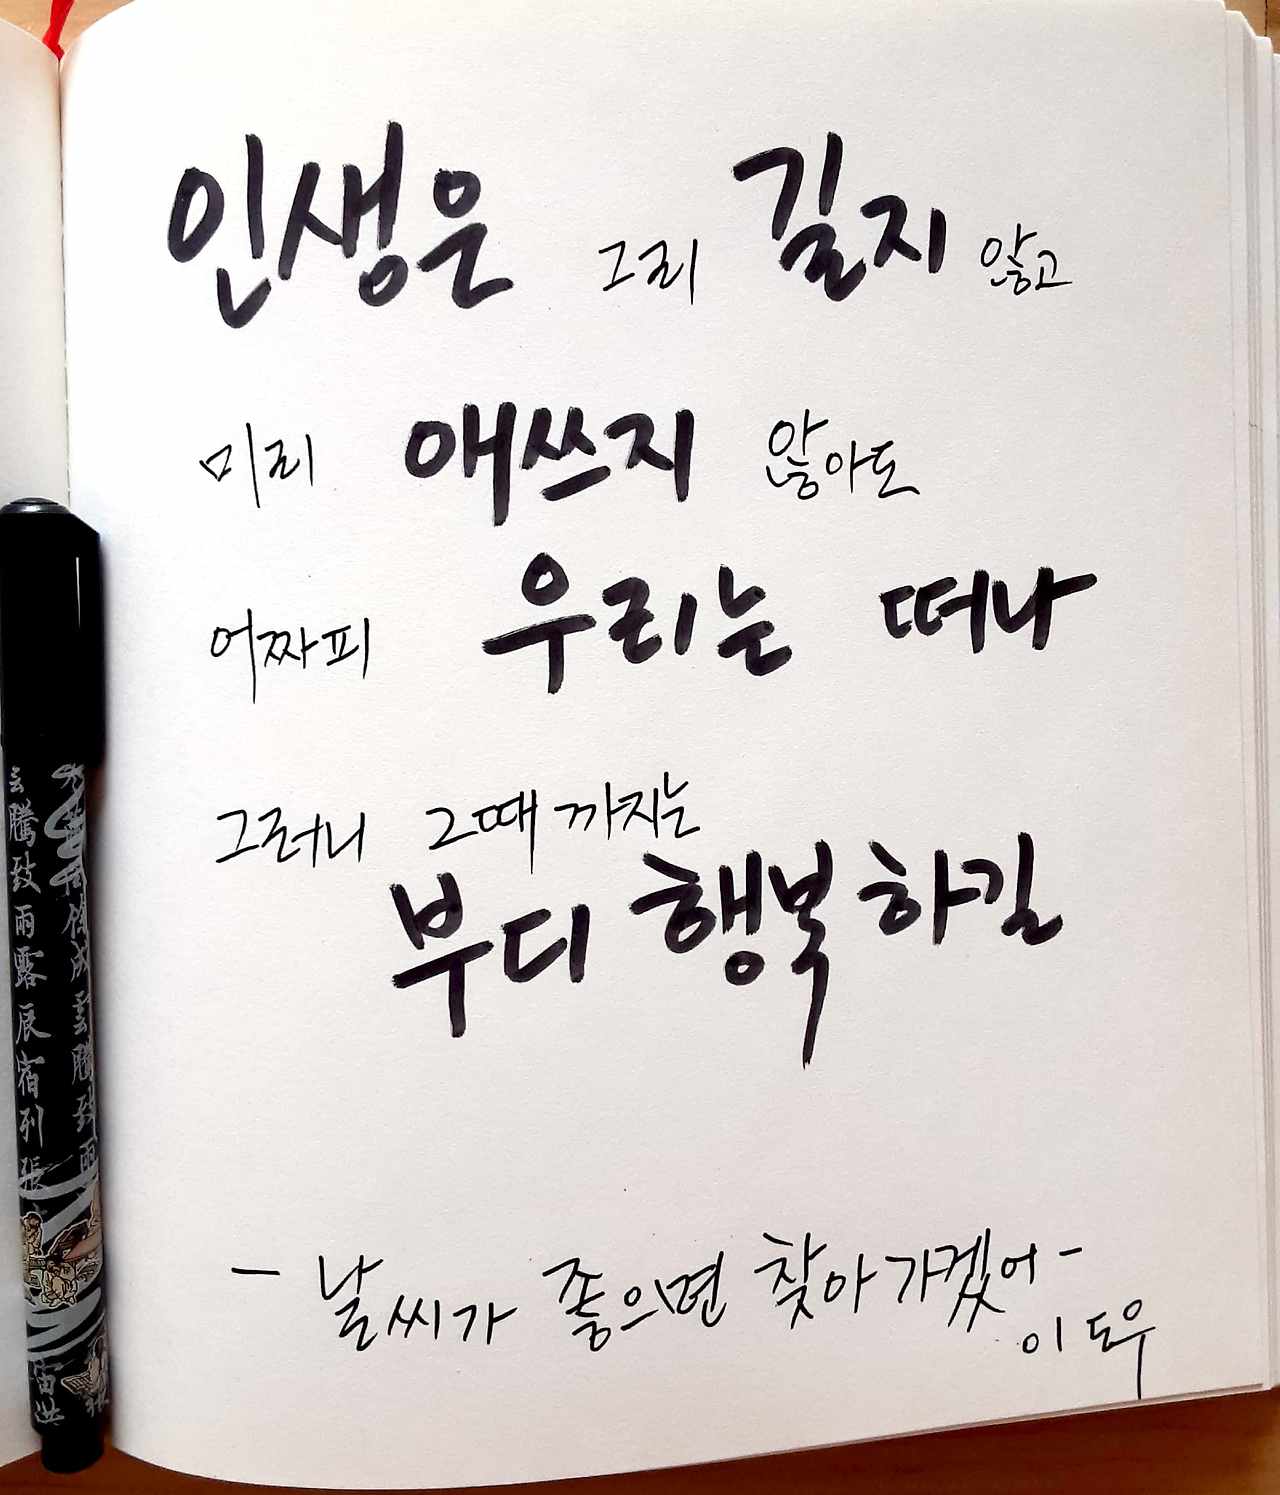 인생은 그리 길지 않고
미리 애쓰지 않아도
어짜피 우리는 떠나
그러니 그때 까지는
부디 행복하길
- 날씨가 좋으면 찾아가겠어 -
이도우
騰致雨露辰宿列張
成雲騰致雨
宙洪